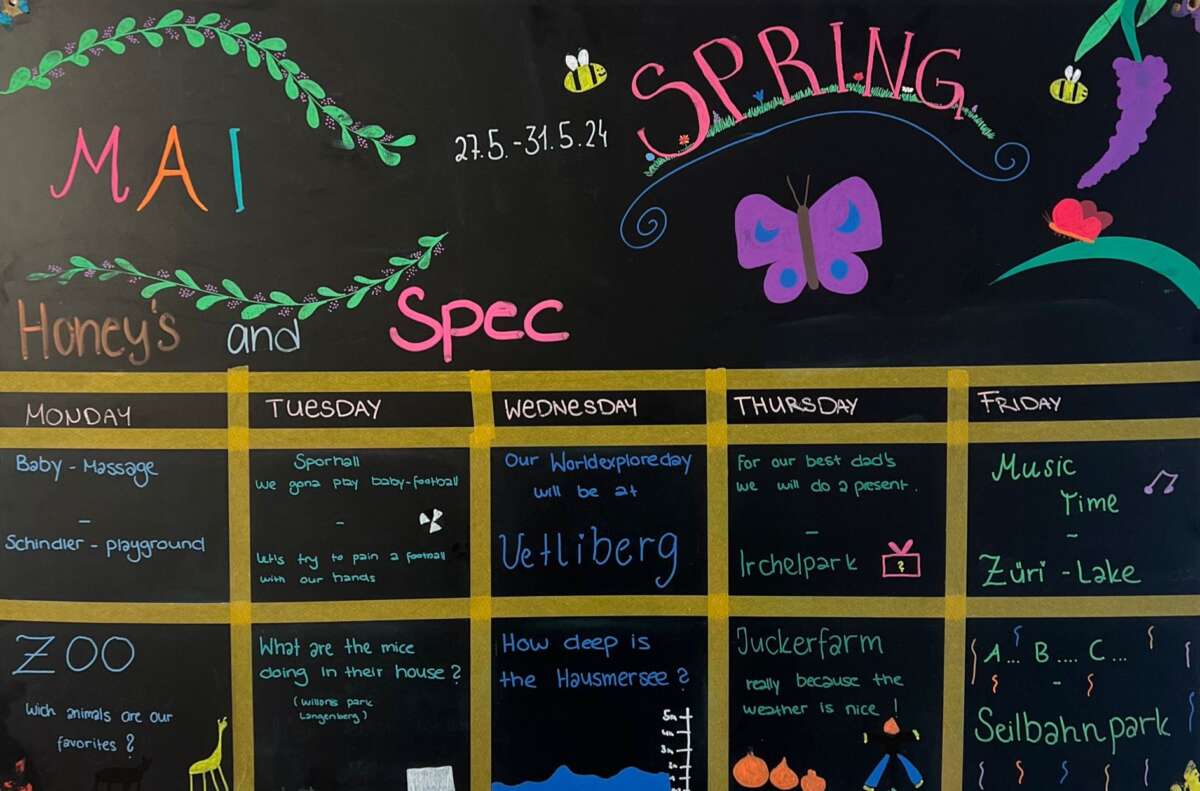 MAI
27.5.-31.5.24
SPRING
Honey's and Spec
MONDAY
TUESDAY
WEDNESDAY
THURSDAY
FRIDAY
Baby - Massage
-
Schindler - playground
Sporhall
we gona play baby-football
-
Let's try to pain a football
with our hands
Our Worldexploreday
will be at
Uetliberg
For our best dad's
we will do a present.
-
Irchelpark
?
Music
Time
-
Züri - Lake
ZOO
Wich animals are our
favorites ?
What are the mice
doing in their house ?
(Willons park
Langenberg)
How deep is
the Hausmersee ?
5m
Juckerfarm
really because the
weather is nice !
A... B .... C ...
-
Seilbahnpark